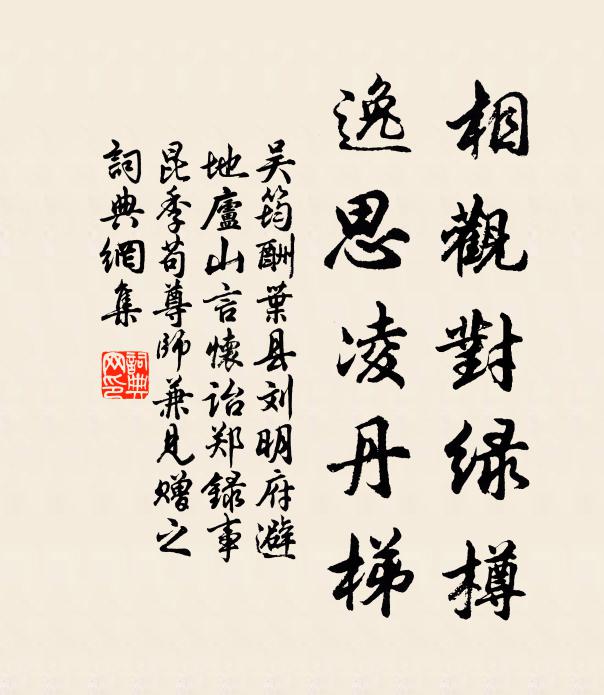 相觀對绿樽
逸思凌丹梯
吴筠酬葉县刘明府避
地廬山言懷诒郑録事
昆季苟尊师兼見赠之
詞典網集
詞典网印